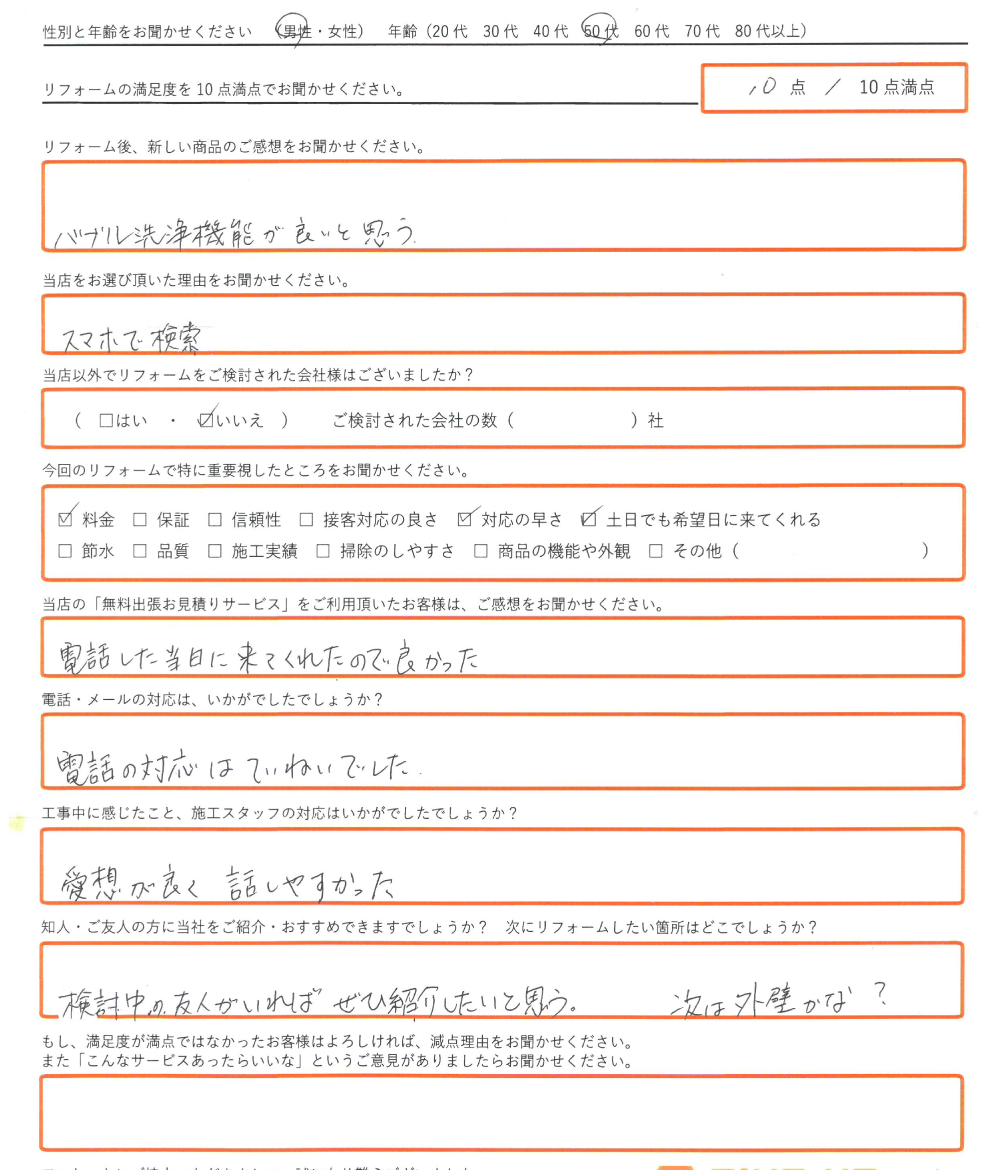 性別と年齢をお聞かせください （男性・女性） 年齢（20代 30代 40代 50代 60代 70代 80代以上）
リフォームの満足度を10点満点でお聞かせください。 10点 ／ 10点満点
リフォーム後、新しい商品のご感想をお聞かせください。
バブル洗浄機能が良いと思う.
当店をお選び頂いた理由をお聞かせください。
スマホで検索
当店以外でリフォームをご検討された会社様はございましたか？
（ □はい ・ ☑いいえ ） ご検討された会社の数（ ）社
今回のリフォームで特に重要視したところをお聞かせください。
☑ 料金 □ 保証 □ 信頼性 □ 接客対応の良さ ☑ 対応の早さ ☑ 土日でも希望日に来てくれる
□ 節水 □ 品質 □ 施工実績 □ 掃除のしやすさ □ 商品の機能や外観 □ その他（ ）
当店の「無料出張お見積りサービス」をご利用頂いたお客様は、ご感想をお聞かせください。
電話した当日に来てくれたので良かった
電話・メールの対応は、いかがでしたでしょうか？
電話の対応はていねいでした.
工事中に感じたこと、施工スタッフの対応はいかがでしたでしょうか？
愛想が良く 話しやすかった
知人・ご友人の方に当社をご紹介・おすすめできますでしょうか？ 次にリフォームしたい箇所はどこでしょうか？
検討中の友人がいればぜひ紹介したいと思う。 次は外壁かな？
もし、満足度が満点ではなかったお客様はよろしければ、減点理由をお聞かせください。
また「こんなサービスあったらいいな」というご意見がありましたらお聞かせください。